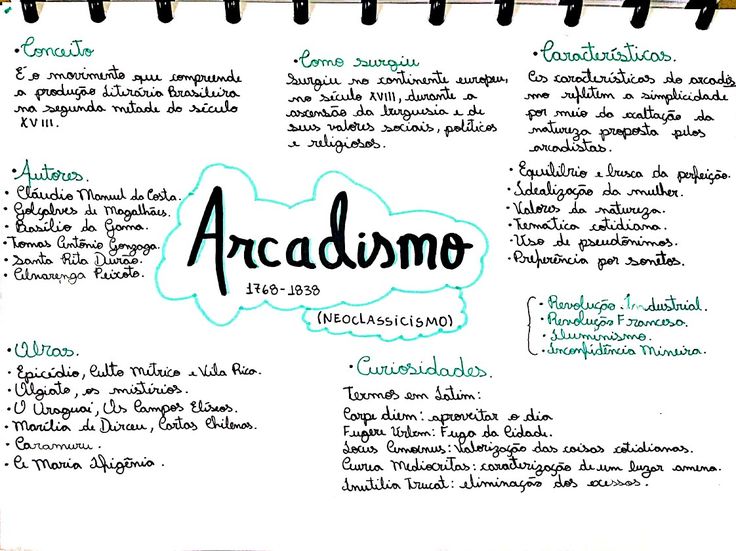 • Conceito
É o movimento que compreende
a produção Literária Brasileira
na segunda metade do século
XVIII.
• Como surgiu
Surgiu no continente europeu,
no século XVIII, durante a
ascensão da burguesia e de
seus valores sociais, políticos
e religiosos.
• Características.
As características do arcadis
mo refletem a simplicidade
por meio da exaltação da
natureza proposta pelos
arcadistas.
• Equilíbrio e busca da perfeição.
• Idealização da mulher.
• Valores da natureza.
• Temática cotidiana.
• Uso de pseudônimos.
• Preferência por sonetos.
• Revolução Industrial.
• Revolução Francesa.
• Iluminismo.
• Inconfidência Mineira.
• Autores.
• Cláudio Manuel da Costa.
• Golçalves de Magalhães.
• Basílio da Gama.
Tomas Antônio Gonzaga.
• Santa Rita Durão.
• Alvarenga Peixoto.
Arcadismo
1768-1838
(NEOCLASSICISMO)
• Obras.
• Epicídio, Culto Métrico e Vila Rica.
• Olgiato, os mistérios.
• O Uraguai, Os Campos Elíseos.
• Marília de Dirceu, Cartas Chilenas.
• Caramuru.
• A Maria Ifigênia.
• Curiosidades.
Termos em Latim:
Carpe diem: aproveitar o dia
Fugere Urbem: Fuga da Cidade.
Locus Amoenus: Valorização das coisas cotidianas.
Aurea Mediocritas: caracterização de um lugar ameno.
Inutilia Trucat: eliminação dos excessos.